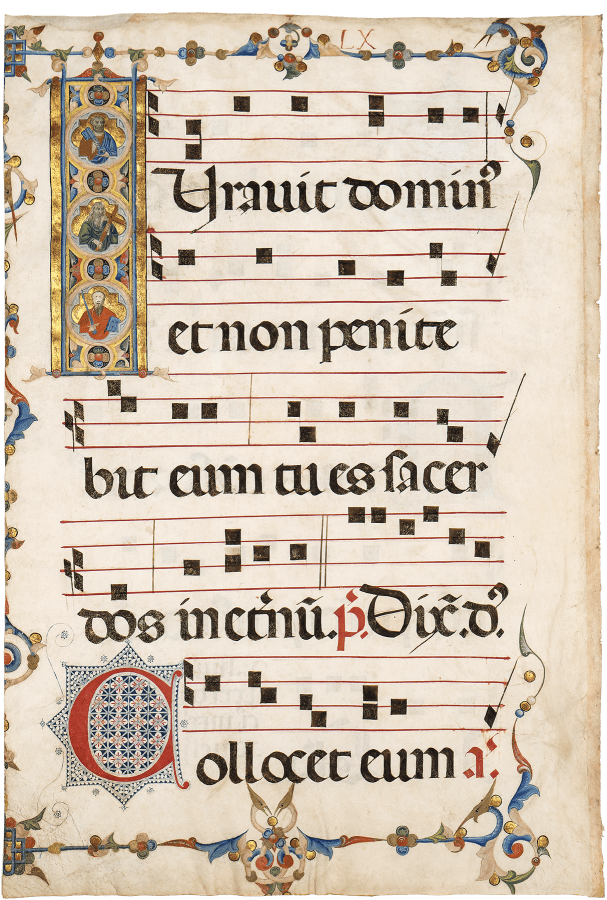 LX
IUravit domin⁹
et non penite
bit eum tu es sacer
dos in et̃nũ. p̃. Dix̃. d⁹.
Collocet eum a᷒.